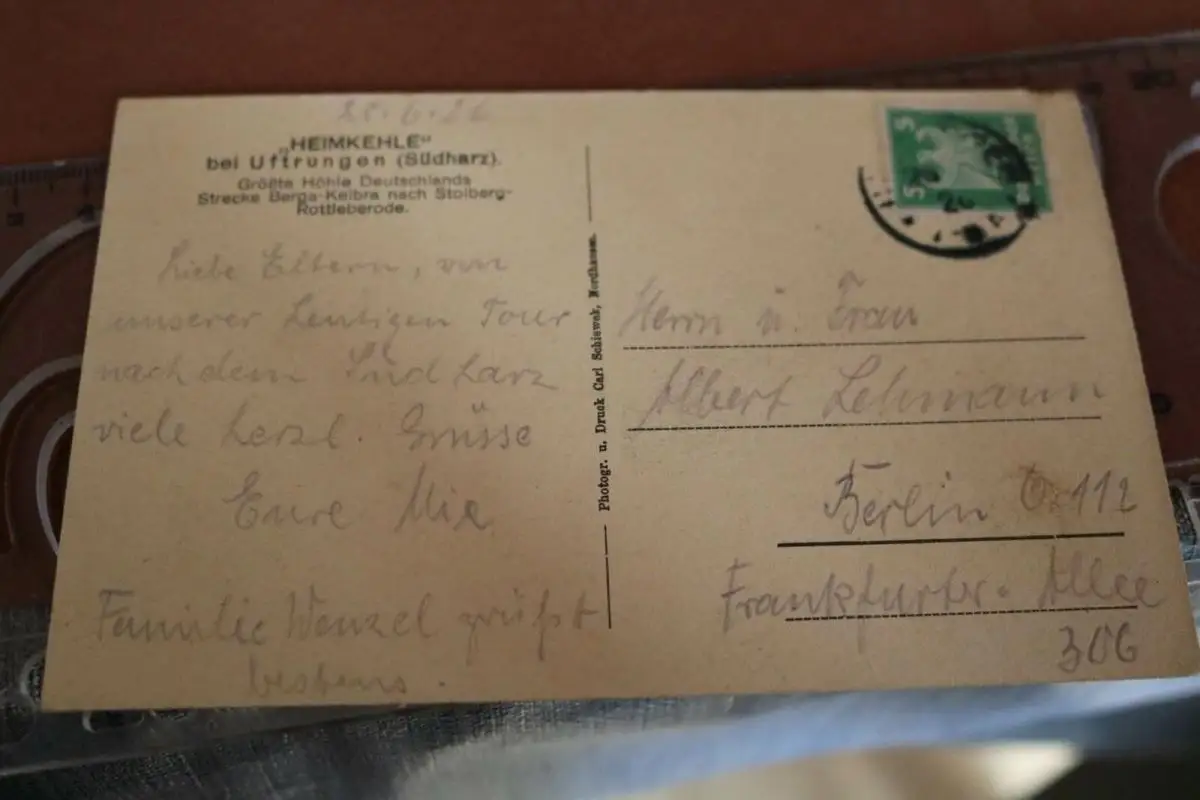 28.6.26
„HEIMKEHLE“
bei Uftrungen (Südharz).
Größte Höhle Deutschlands
Strecke Berga-Kelbra nach Stolberg-
Rottleberode.
Liebe Eltern, von
unserer heutigen Tour
nach dem Südharz
viele herzl. Grüsse
Eure Mia
Familie Wenzel grüßt
bestens.
Photogr. u. Druck Carl Schiewek, Nordhausen.
5
5
Herrn u. Frau
Albert Lehmann
Berlin O. 112
Frankfurter-Allee
306